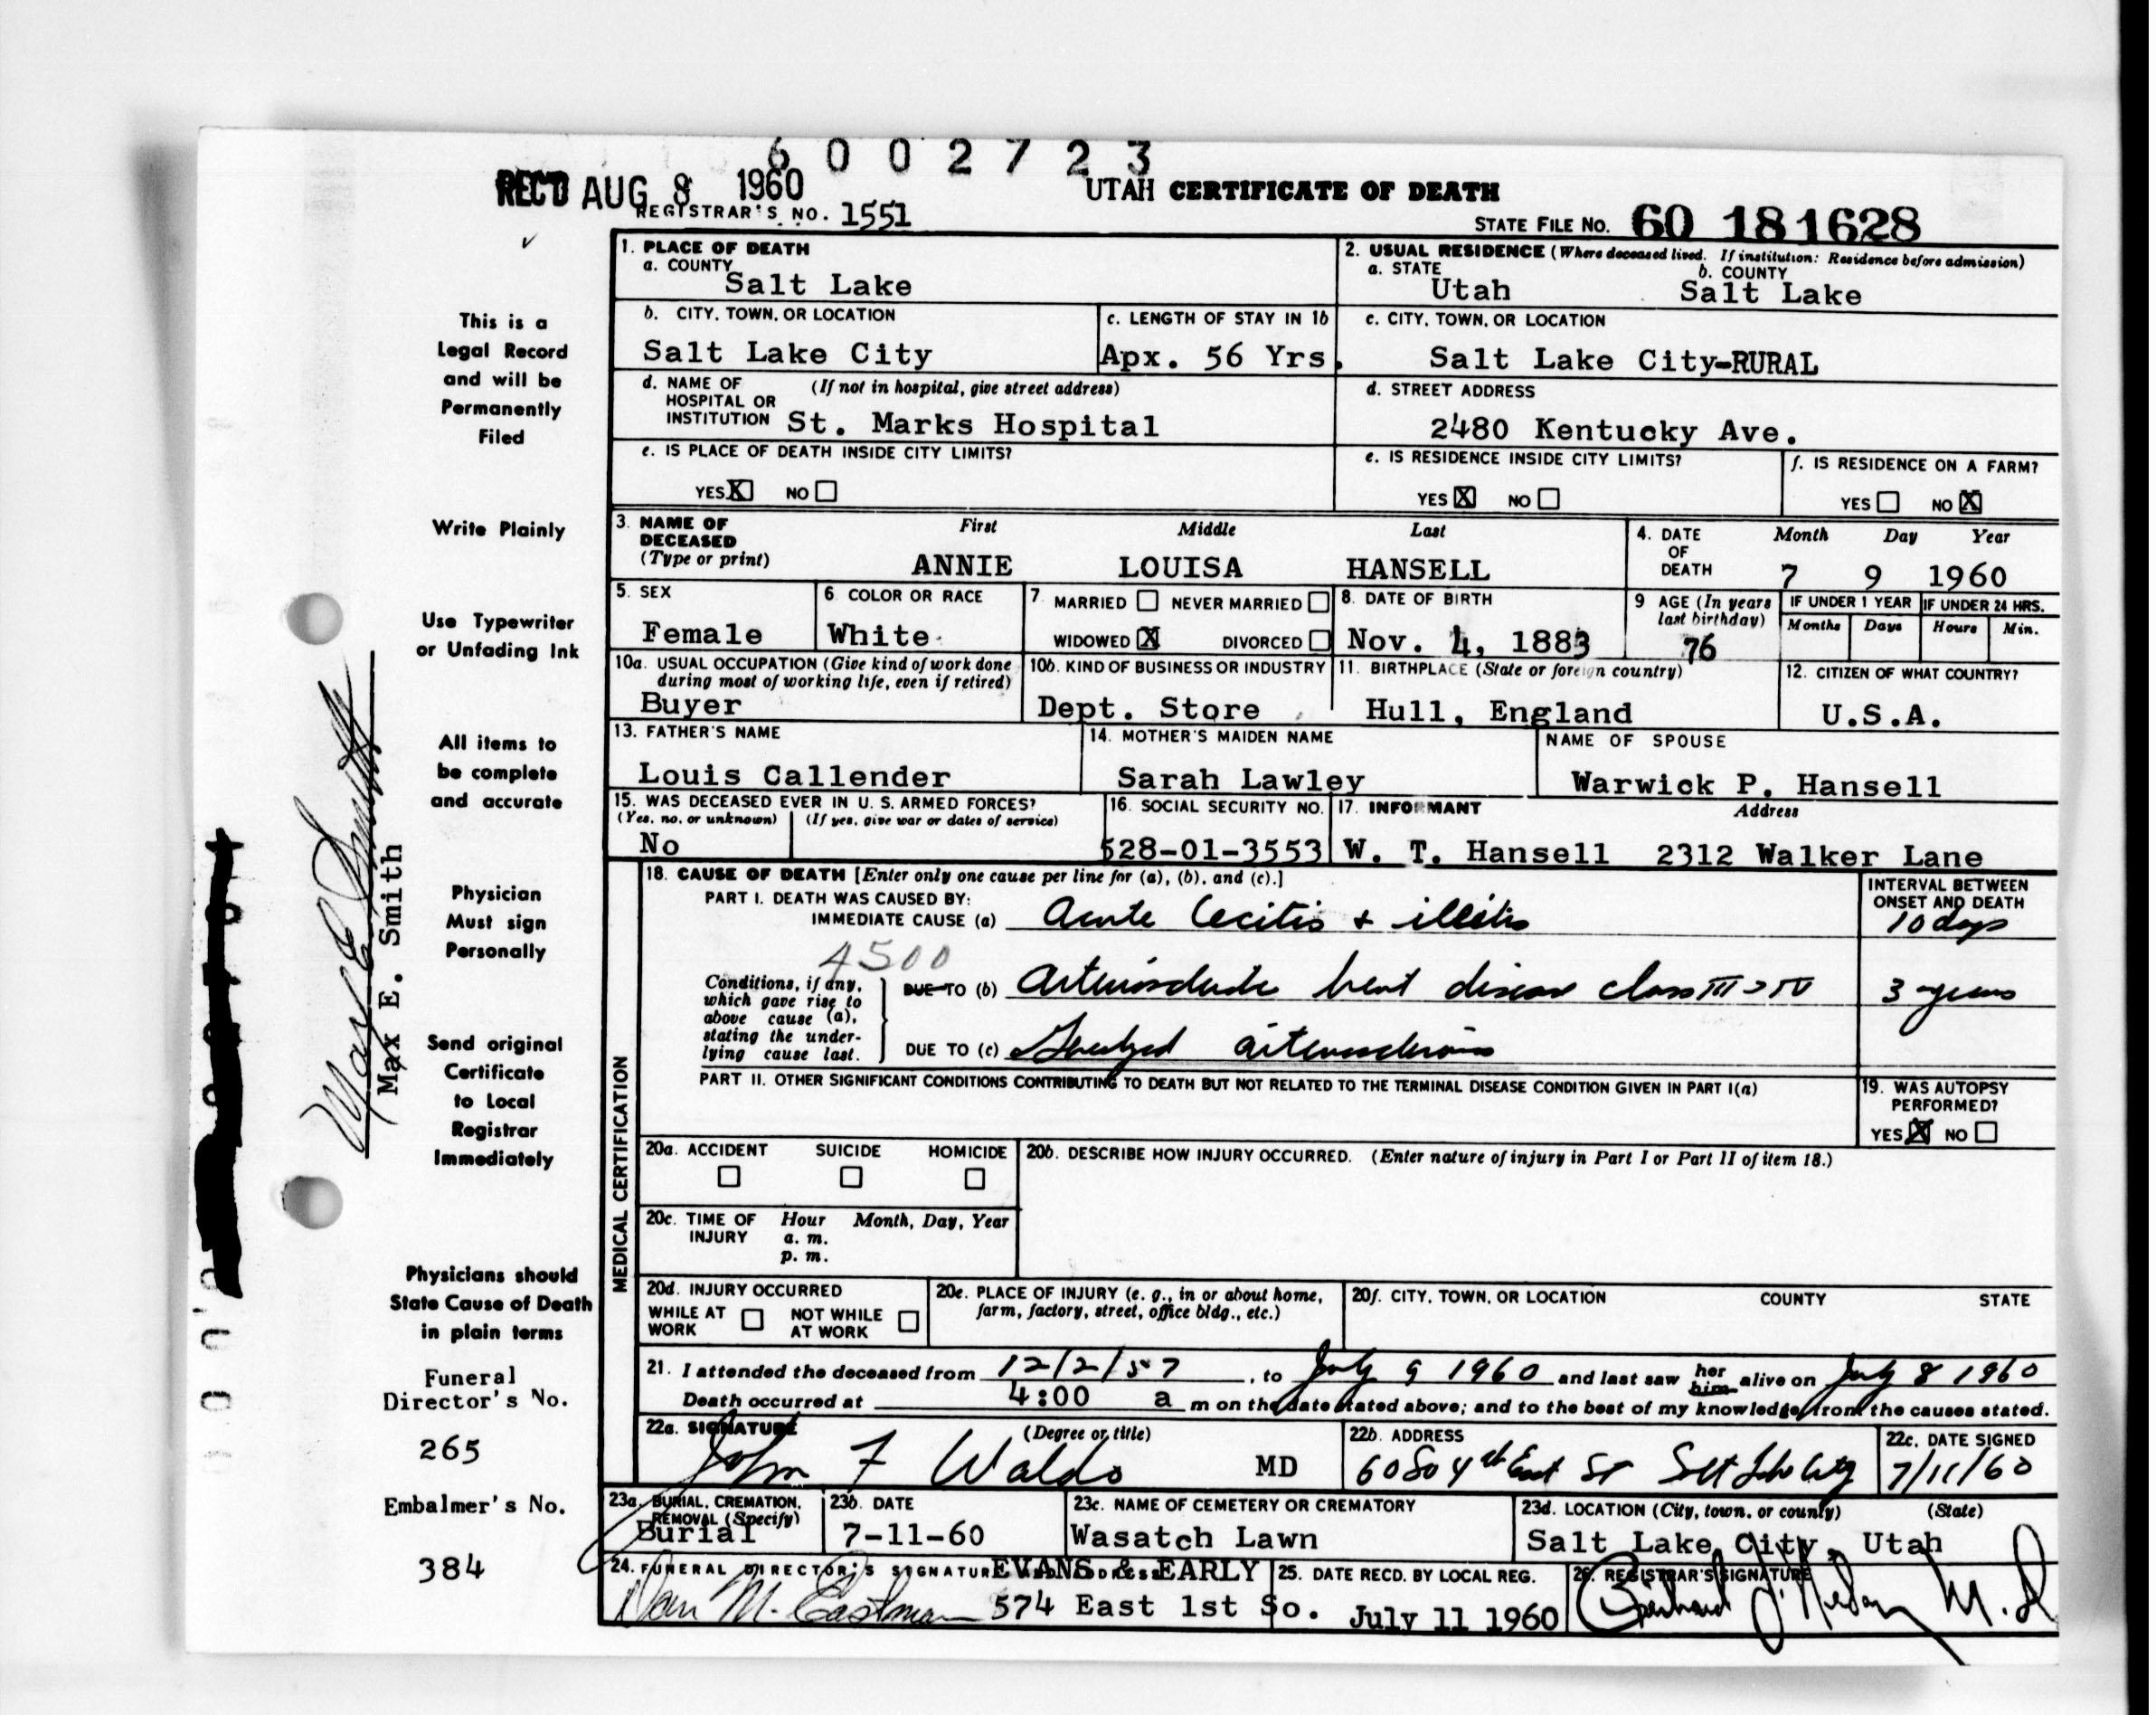 6002723
REC'D AUG 8 1960
UTAH CERTIFICATE OF DEATH
REGISTRAR'S NO. 1551
STATE FILE NO. 60 181628
This is a
Legal Record
and will be
Permanently
Filed
Write Plainly
Use Typewriter
or Unfading Ink
All items to
be complete
and accurate
Physician
Must sign
Personally
Send original
Certificate
to Local
Registrar
Immediately
Physicians should
State Cause of Death
in plain terms
Funeral
Director's No.
265
Embalmer's No.
384
Max E Smith
Max E. Smith
1. PLACE OF DEATH
a. COUNTY
Salt Lake
2. USUAL RESIDENCE (Where deceased lived. If institution: Residence before admission)
a. STATE b. COUNTY
Utah Salt Lake
b. CITY, TOWN, OR LOCATION
Salt Lake City
c. LENGTH OF STAY IN 1b
Apx. 56 Yrs.
c. CITY, TOWN, OR LOCATION
Salt Lake City-RURAL
d. NAME OF (If not in hospital, give street address)
HOSPITAL OR
INSTITUTION St. Marks Hospital
d. STREET ADDRESS
2480 Kentucky Ave.
e. IS PLACE OF DEATH INSIDE CITY LIMITS?
YES X NO
e. IS RESIDENCE INSIDE CITY LIMITS?
YES X NO
f. IS RESIDENCE ON A FARM?
YES NO X
3. NAME OF DECEASED (Type or print)
First Middle Last
ANNIE LOUISA HANSELL
4. DATE OF DEATH
Month Day Year
7 9 1960
5. SEX
Female
6. COLOR OR RACE
White
7. MARRIED NEVER MARRIED
WIDOWED X DIVORCED
8. DATE OF BIRTH
Nov. 4, 1883
9 AGE (In years last birthday)
76
IF UNDER 1 YEAR IF UNDER 24 HRS.
Months Days Hours Min.
10a. USUAL OCCUPATION (Give kind of work done
during most of working life, even if retired)
Buyer
10b. KIND OF BUSINESS OR INDUSTRY
Dept. Store
11. BIRTHPLACE (State or foreign country)
Hull, England
12. CITIZEN OF WHAT COUNTRY?
U.S.A.
13. FATHER'S NAME
Louis Callender
14. MOTHER'S MAIDEN NAME
Sarah Lawley
NAME OF SPOUSE
Warwick P. Hansell
15. WAS DECEASED EVER IN U. S. ARMED FORCES?
(Yes, no, or unknown) (If yes, give war or dates of service)
No
16. SOCIAL SECURITY NO.
528-01-3553
17. INFORMANT Address
W. T. Hansell 2312 Walker Lane
MEDICAL CERTIFICATION
18. CAUSE OF DEATH [Enter only one cause per line for (a), (b), and (c).]
PART I. DEATH WAS CAUSED BY:
IMMEDIATE CAUSE (a) Acute Cecitis + illeitis
INTERVAL BETWEEN
ONSET AND DEATH
10 days
4500
Conditions, if any,
which gave rise to
above cause (a),
stating the under-
lying cause last.
DUE TO (b) Arteriosclerotic heart disease class III > IV
3 years
DUE TO (c) arteriosclerosis
PART II. OTHER SIGNIFICANT CONDITIONS CONTRIBUTING TO DEATH BUT NOT RELATED TO THE TERMINAL DISEASE CONDITION GIVEN IN PART I(a)
19. WAS AUTOPSY
PERFORMED?
YES X NO
20a. ACCIDENT SUICIDE HOMICIDE
20b. DESCRIBE HOW INJURY OCCURRED. (Enter nature of injury in Part I or Part II of item 18.)
20c. TIME OF INJURY
Hour Month, Day, Year
a. m.
p. m.
20d. INJURY OCCURRED
WHILE AT WORK NOT WHILE AT WORK
20e. PLACE OF INJURY (e. g., in or about home,
farm, factory, street, office bldg., etc.)
20f. CITY, TOWN, OR LOCATION COUNTY STATE
21. I attended the deceased from 12/2/57, to July 9 1960 and last saw her him alive on July 8 1960
Death occurred at 4:00 a m on the date stated above; and to the best of my knowledge, from the causes stated.
22a. SIGNATURE (Degree or title)
John F Waldo MD
22b. ADDRESS
508 4th East St Salt Lake City
22c. DATE SIGNED
7/11/60
23a. BURIAL, CREMATION,
REMOVAL (Specify)
Burial
23b. DATE
7-11-60
23c. NAME OF CEMETERY OR CREMATORY
Wasatch Lawn
23d. LOCATION (City, town, or county) (State)
Salt Lake City, Utah
24. FUNERAL DIRECTOR'S SIGNATURE
EVANS & EARLY
574 East 1st So.
25. DATE RECD. BY LOCAL REG.
July 11 1960
26. REGISTRAR'S SIGNATURE
M.D